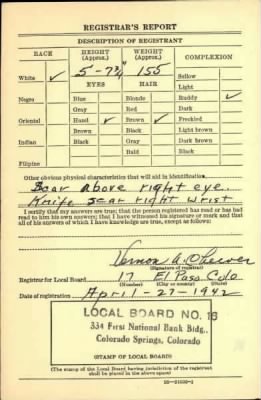 REGISTRAR'S REPORT
DESCRIPTION OF REGISTRANT
RACE HEIGHT (Approx.) WEIGHT (Approx.) COMPLEXION
White ✓ 5-7¾" 155 Sallow
EYES HAIR Light
Negro Blue Blonde Ruddy ✓
Gray Red Dark
Oriental Hazel ✓ Brown ✓ Freckled
Brown Black Light brown
Indian Black Gray Dark brown
Bald Black
Filipino
Other obvious physical characteristics that will aid in identification
Scar above right eye.
Knife scar right wrist
I certify that my answers are true; that the person registered has read or has had
read to him his own answers; that I have witnessed his signature or mark and that
all of his answers of which I have knowledge are true, except as follows:
Vernon A. Cheever
(Signature of registrar)
Registrar for Local Board 17 El Paso Colo
(Number) (City or county)
Date of registration April-27-1942
LOCAL BOARD NO. 16
334 First National Bank Bldg.,
Colorado Springs, Colorado
(STAMP OF LOCAL BOARD)
(The stamp of the Local Board having jurisdiction of the registrant
shall be placed in the above space)